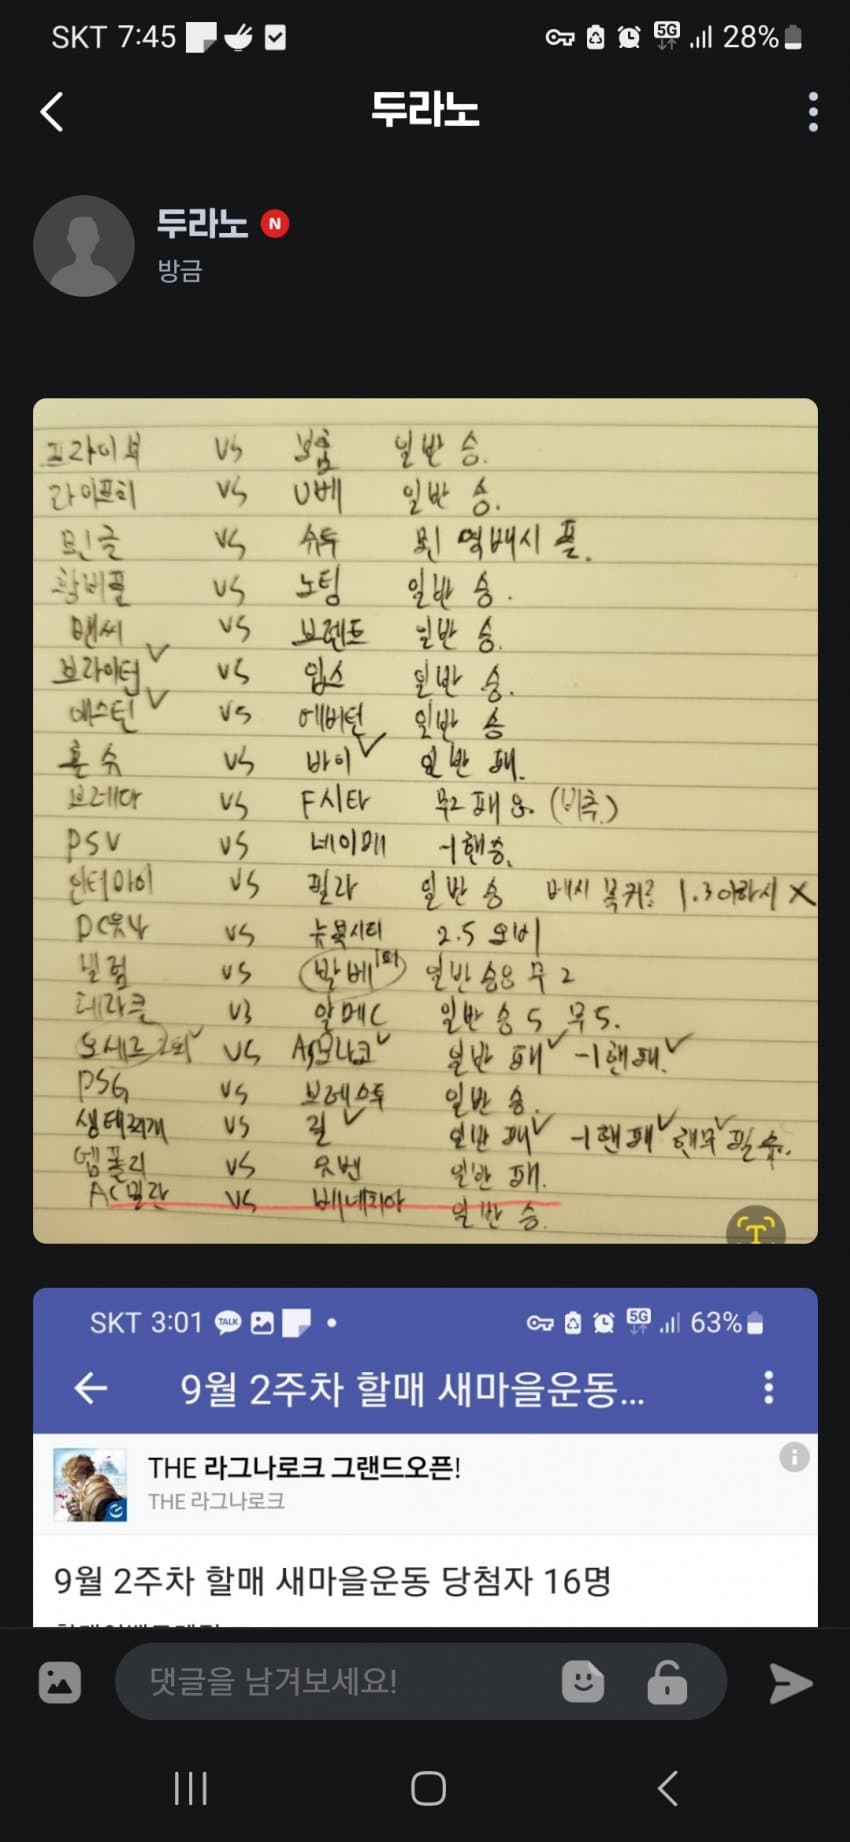 SKT 7:45 5G 28%
두라노
두라노 N
방금
프라이부 VS 보훔 일반 승.
라이프치 VS U베 일반 승.
묀글 VS 슈투 묀 역배시 플.
함비플 VS 노팅 일반 승.
맨씨 VS 브렌트 일반 승.
브라이턴 VS 입스 일반 승.
애스턴 VS 에버턴 일반 승
홀슈 VS 바이 일반 패.
브레다 VS F시타 무2 패8. (비추)
PSV VS 네이메 -1핸승.
인터마이 VS 필라 일반 승 메시 복귀? 1.3이하시 X
DC유나 VS 뉴욕시티 2.5 오버
빌럼 VS 박베 1회 일반 승8 무2
테라클 VS 알메C 일반 승5 무5.
오세르 2회 VS AS모나코 일반 패 -1핸패.
PSG VS 브레스투 일반 승.
생테티개 VS 릴 일반 패 -1핸패 핸무 필수.
엠폴리 VS 유벤 일반 패.
AC밀란 VS 베네치아 일반 승.
T
SKT 3:01 TALK 5G 63%
9월 2주차 할매 새마을운동...
THE 라그나로크 그랜드오픈!
THE 라그나로크
9월 2주차 할매 새마을운동 당첨자 16명
댓글을 남겨보세요!